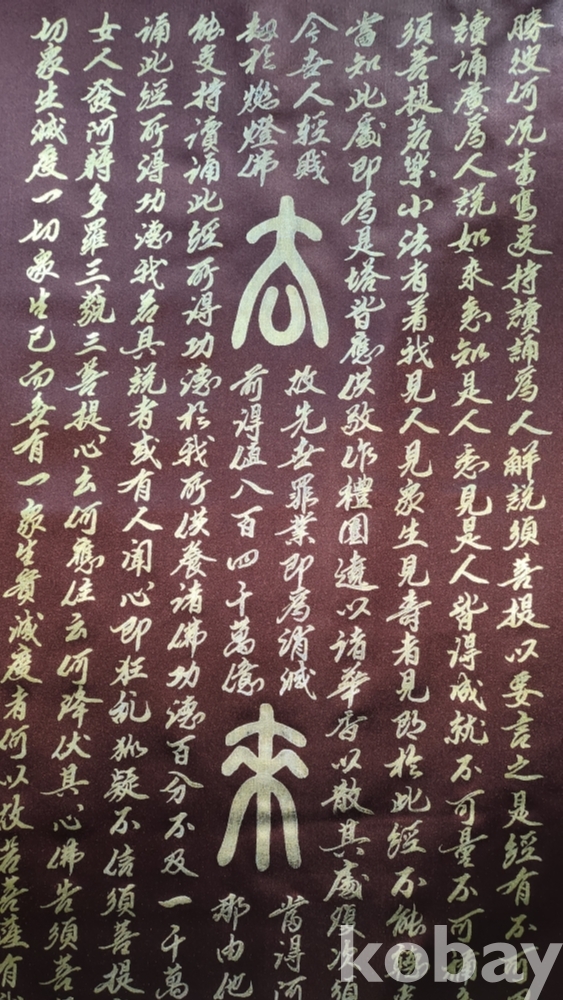 勝彼何況書寫受持讀誦為人解說須菩提以要言之是經有不可
讀誦廣為人說如來悉知是人悉見是人皆得成就不可量不可稱
須菩提若樂小法者着我見人見眾生見壽者見即於此經不能聽
當知此處即為是塔皆應供敬作禮圍遶以諸華香以散其處復次須
今世人輕賤故先世罪業即為消滅當得阿
劫於燃燈佛前得值八百四千萬億那由他
去來
能受持讀誦此經所得功德於我所供養諸佛功德百分不及一千萬
誦此經所得功德我若具說者或有人聞心即狂亂狐疑不信須菩提
女人發阿耨多羅三藐三菩提心云何應住云何降伏其心佛告須菩
切眾生滅度一切眾生已而無有一眾生實滅度者何以故若菩薩有
kobay